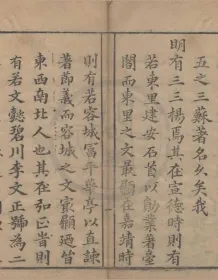 五之三蘇著名久矣我
明有三三楊焉其在宣德時則有
若東里建安石首以勛業著臺
閣而東里之文最顯在嘉靖時
則有若容城富平斛山以直諫
著節義而容城之文最顯迺皆
東西南北人也其在弘正時則
有若文懿碧川李文正號為二